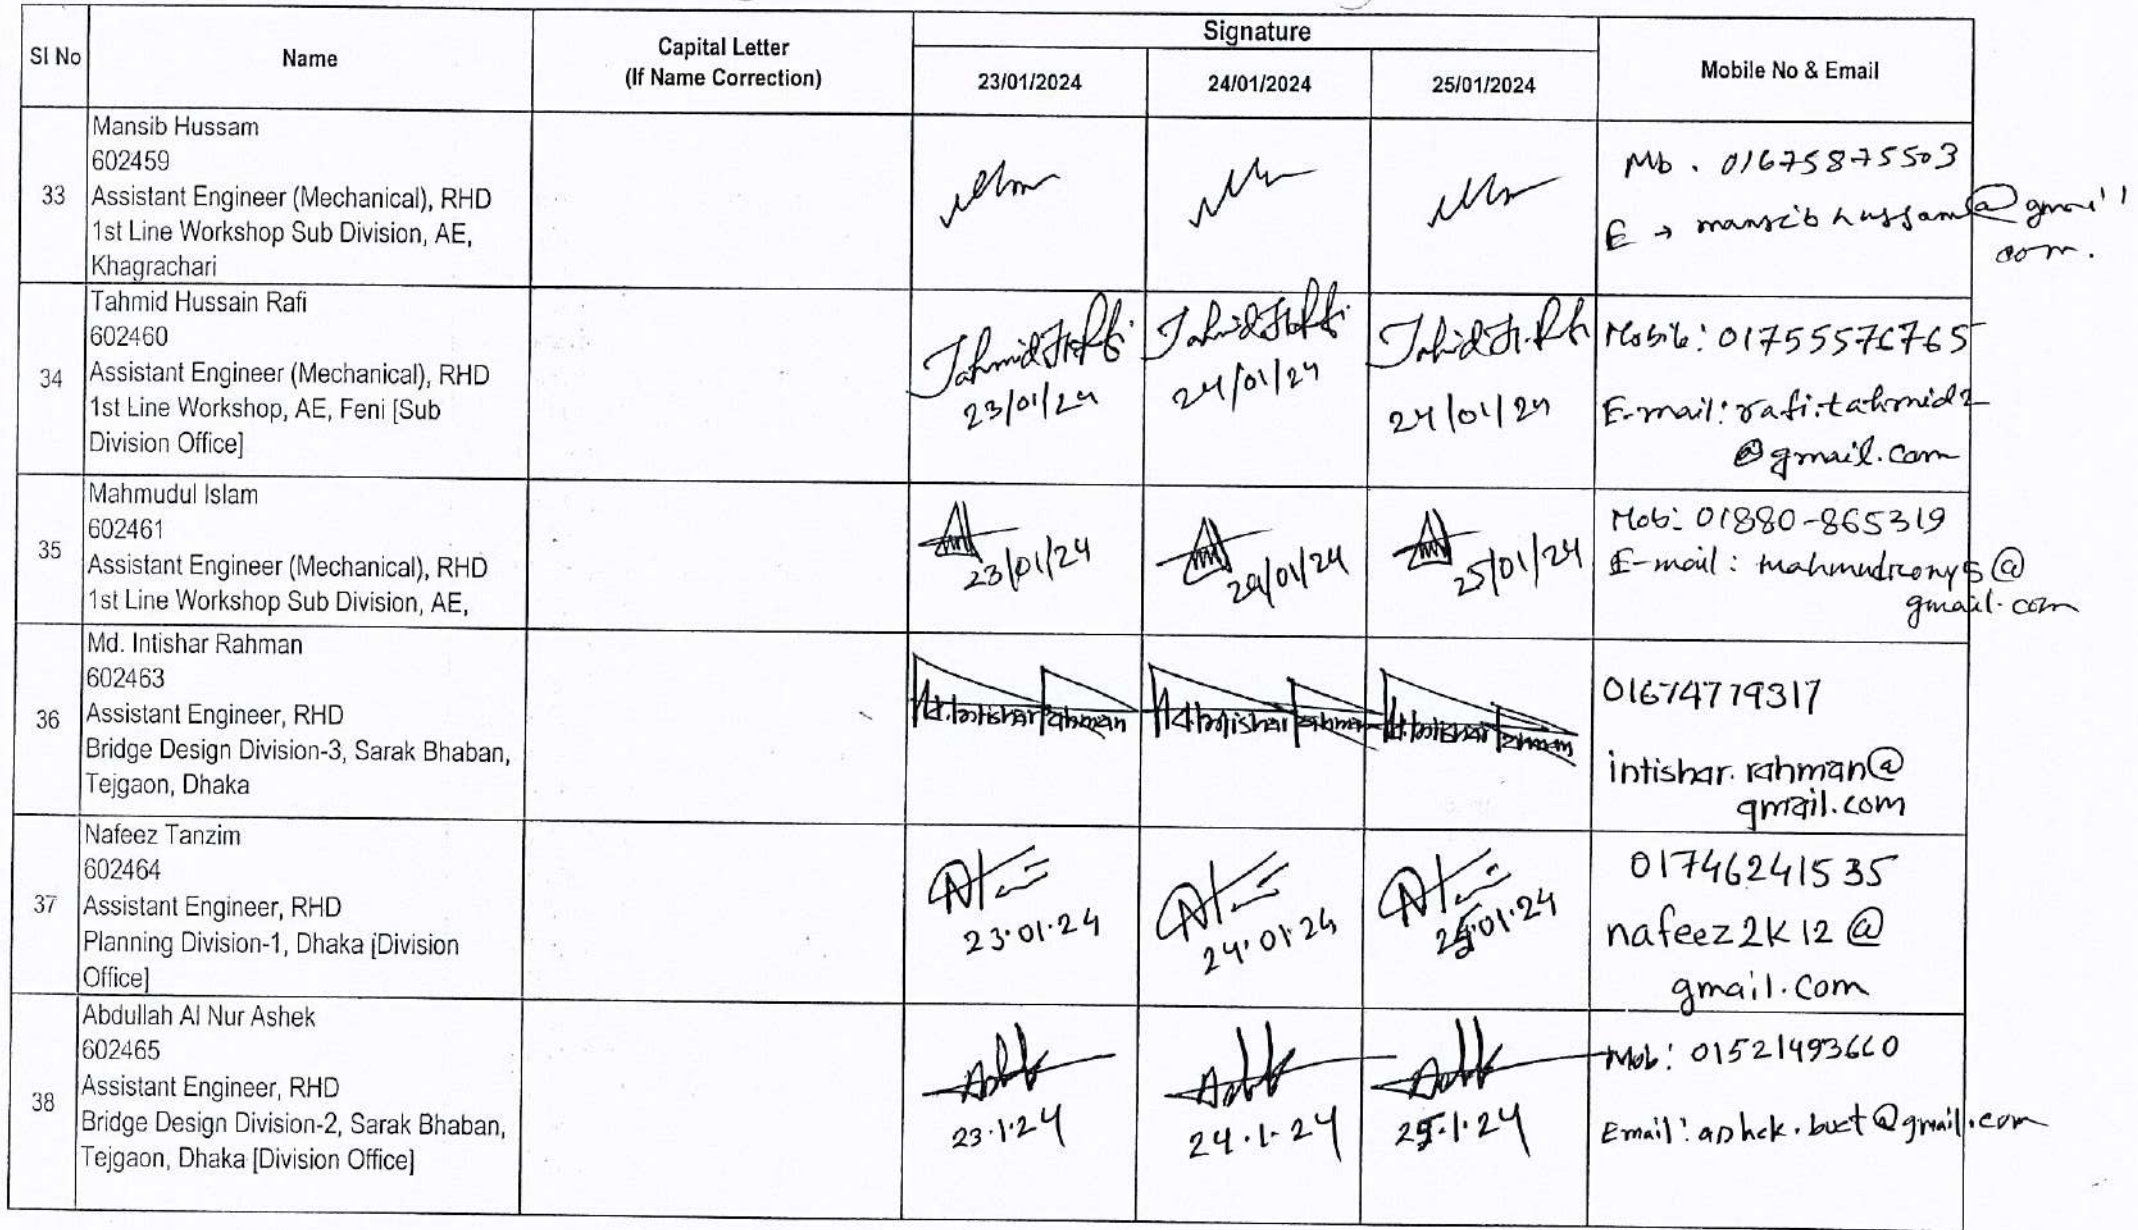 Sl No
Name
Capital Letter
(If Name Correction)
Signature
23/01/2024
24/01/2024
25/01/2024
Mobile No & Email
33
Mansib Hussam
602459
Assistant Engineer (Mechanical), RHD
1st Line Workshop Sub Division, AE,
Khagrachari
Mb. 01675875503
E → mansibhussam@gmail
com.
34
Tahmid Hussain Rafi
602460
Assistant Engineer (Mechanical), RHD
1st Line Workshop, AE, Feni [Sub
Division Office]
23/01/24
24/01/24
24/01/24
Mobile: 01755576765
E-mail: rafi.tahmid2
@gmail.com
35
Mahmudul Islam
602461
Assistant Engineer (Mechanical), RHD
1st Line Workshop Sub Division, AE,
23/01/24
24/01/24
25/01/24
Mob: 01880-865319
E-mail: mahmudrony5@
gmail.com
36
Md. Intishar Rahman
602463
Assistant Engineer, RHD
Bridge Design Division-3, Sarak Bhaban,
Tejgaon, Dhaka
Md. Intishar Rahman
Md. Intishar Rahman
Md. Intishar Rahman
01674779317
intishar.rahman@
gmail.com
37
Nafeez Tanzim
602464
Assistant Engineer, RHD
Planning Division-1, Dhaka [Division
Office]
23.01.24
24.01.24
25.01.24
01746241535
nafeez2k12@
gmail.com
38
Abdullah Al Nur Ashek
602465
Assistant Engineer, RHD
Bridge Design Division-2, Sarak Bhaban,
Tejgaon, Dhaka [Division Office]
23.1.24
24.1.24
25.1.24
Mob: 01521493660
Email: ashek.buet@gmail.com